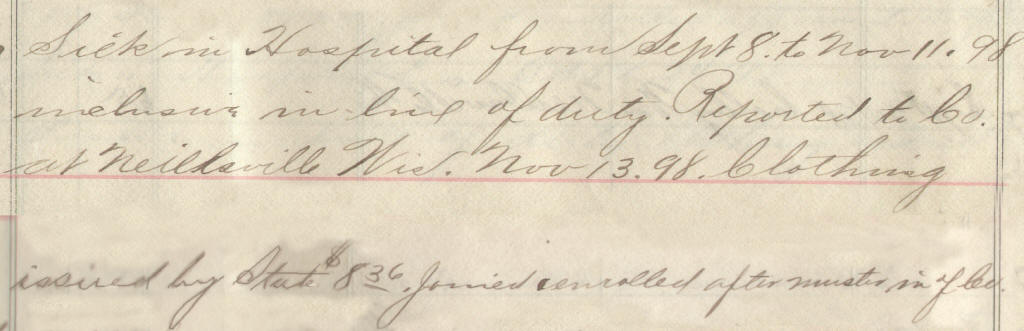 Sick in Hospital from Sept 8. to Nov 11. 98
inclusive in line of duty. Reported to Co.
at Neillsville Wis. Nov 13. 98. Clothing
issued by State $8 36. Joined enrolled after muster in of Co.